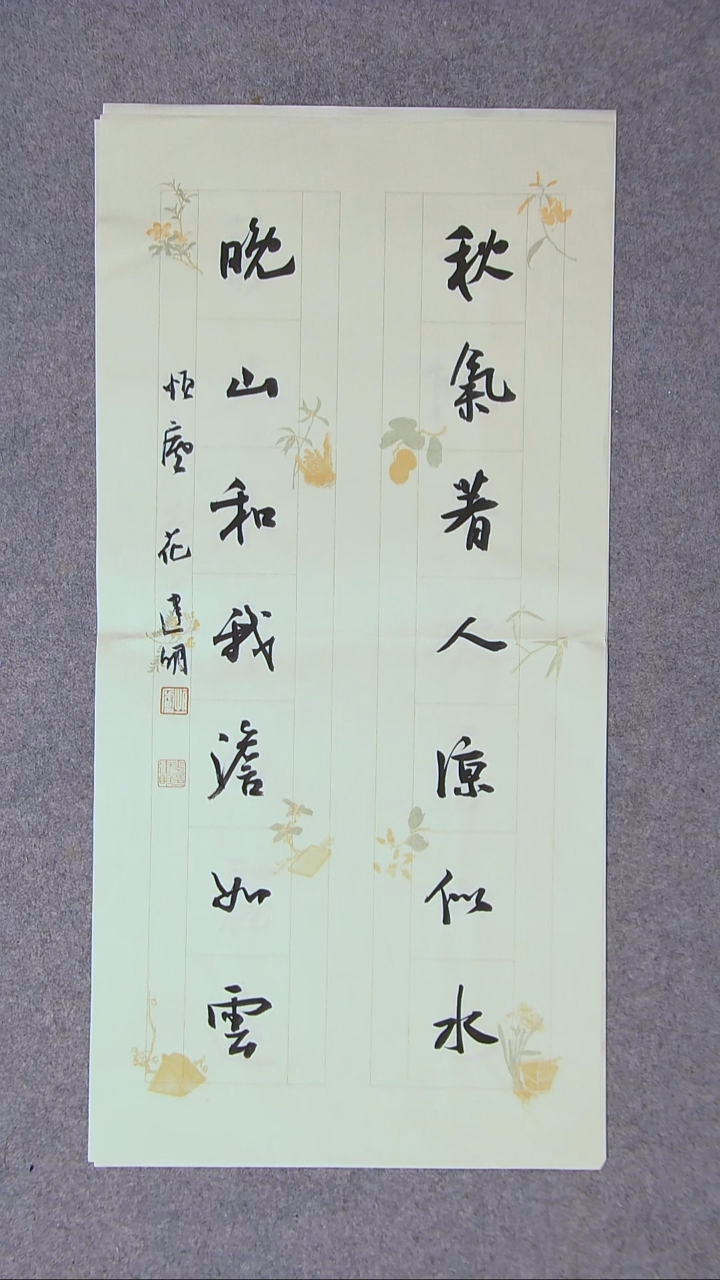 秋氣著人涼似水
晚山和我澹如雲
恒廬 花建明